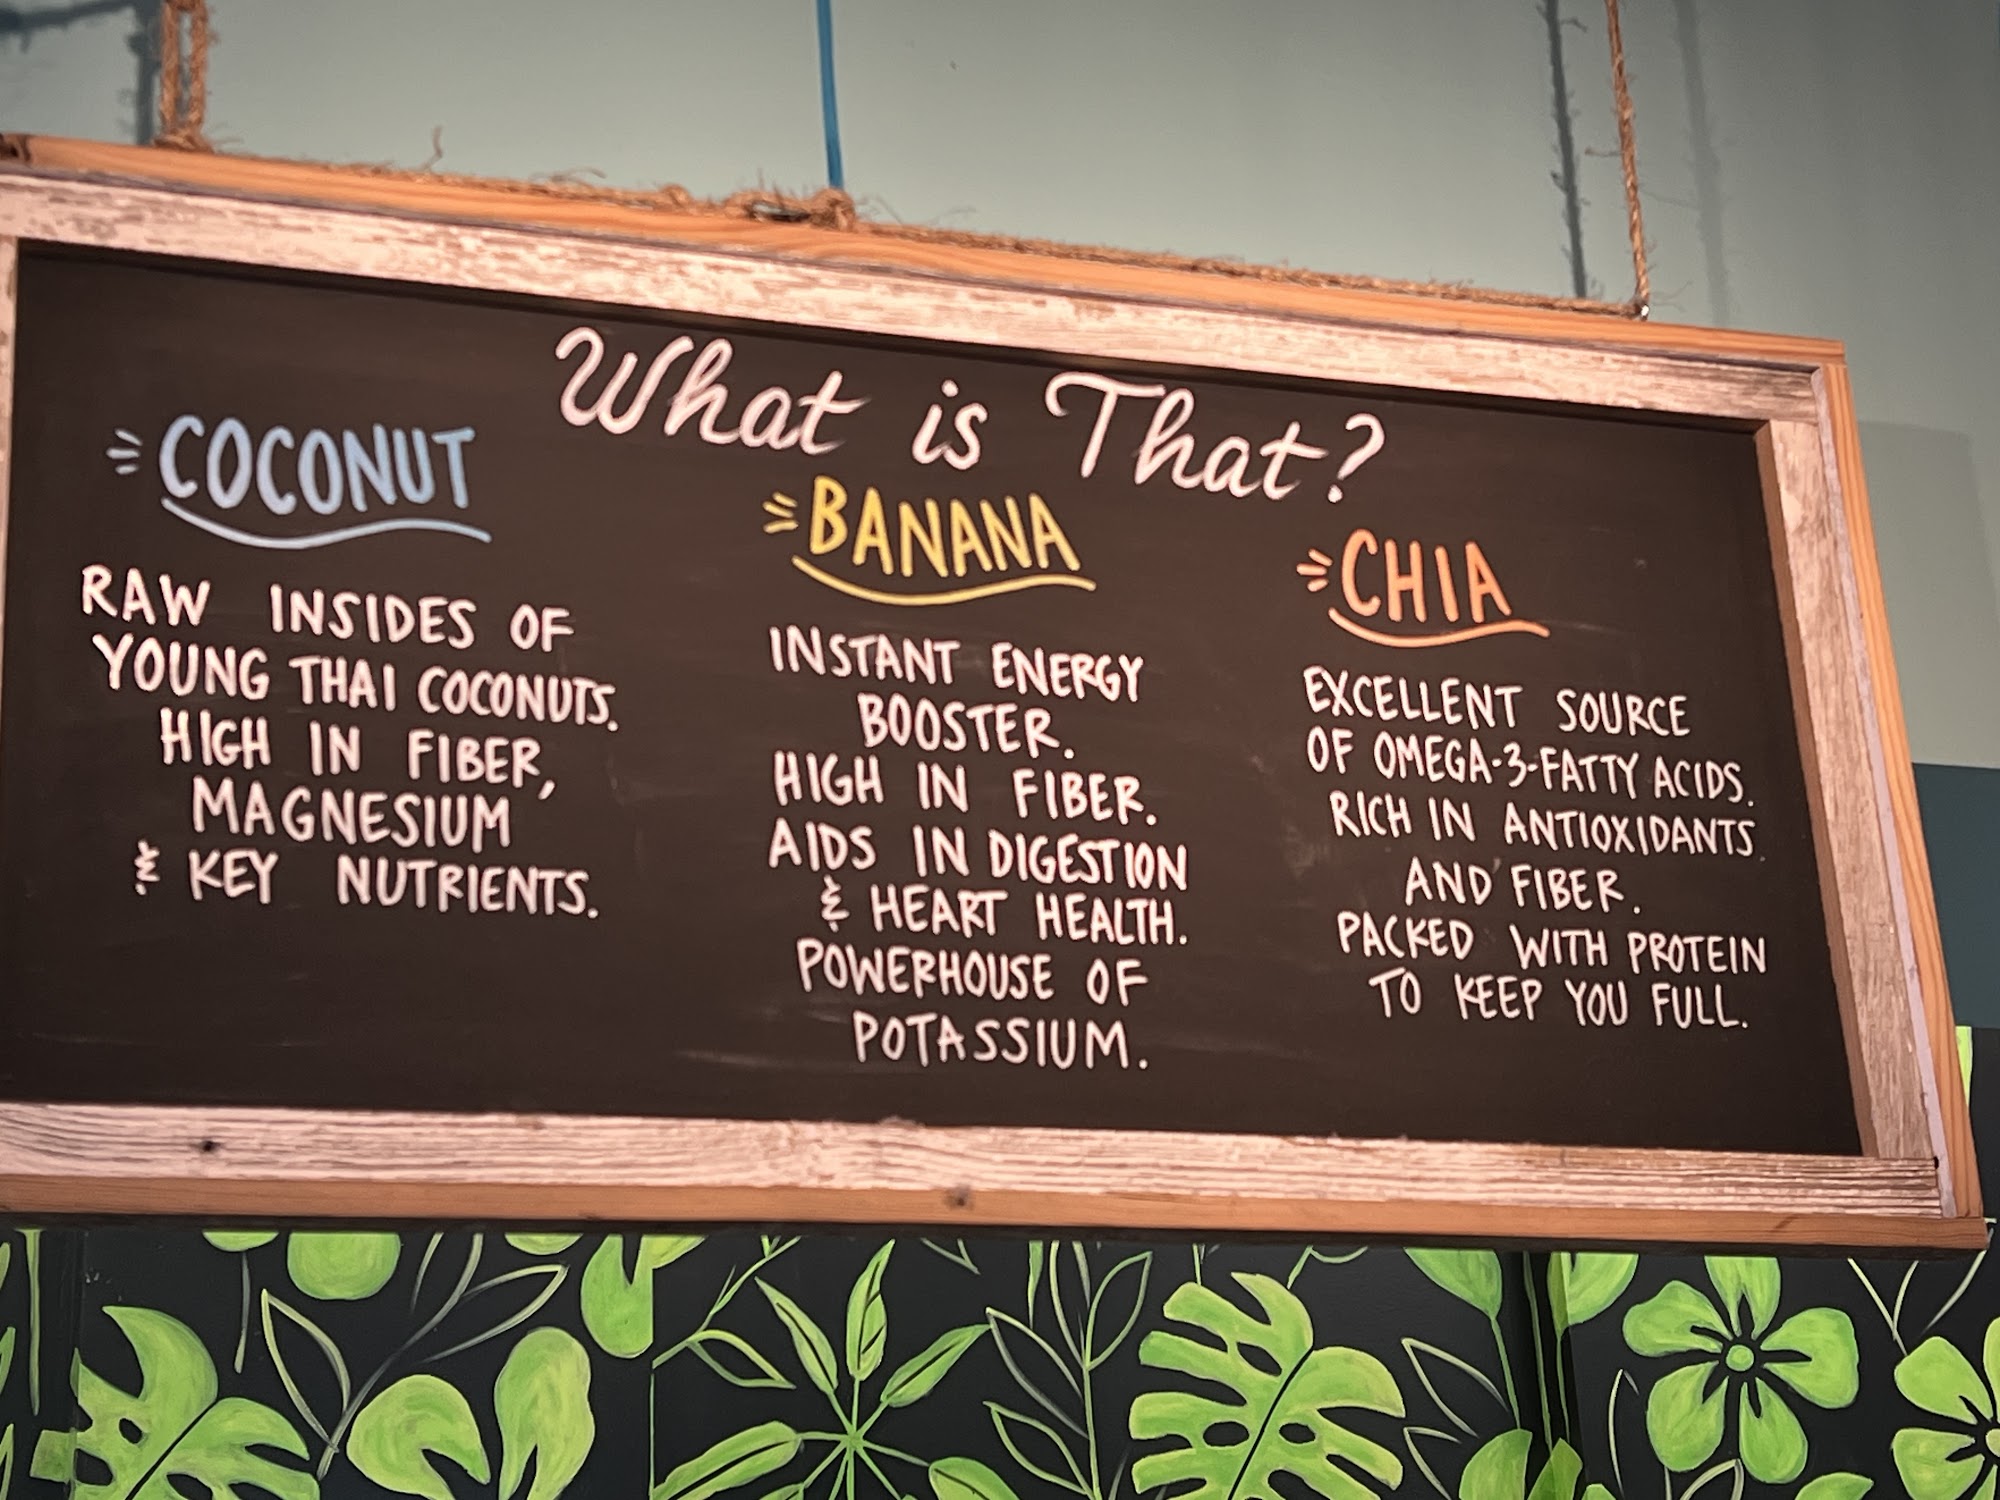 What is That?
COCONUT
RAW INSIDES OF
YOUNG THAI COCONUTS.
HIGH IN FIBER,
MAGNESIUM
& KEY NUTRIENTS.
BANANA
INSTANT ENERGY
BOOSTER.
HIGH IN FIBER.
AIDS IN DIGESTION
& HEART HEALTH.
POWERHOUSE OF
POTASSIUM.
CHIA
EXCELLENT SOURCE
OF OMEGA-3-FATTY ACIDS.
RICH IN ANTIOXIDANTS
AND FIBER.
PACKED WITH PROTEIN
TO KEEP YOU FULL.